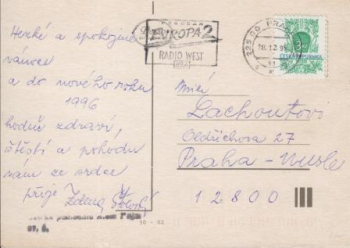 Hezké a spokojené
vánoce
a do nového roku
1996
hodně zdraví,
štěstí a pohodu
vám ze srdce
přeje Zdena
EVROPA 2
RADIO WEST
Milí
Lachoutovi
Oldřichova 27
Praha - Nusle
12800